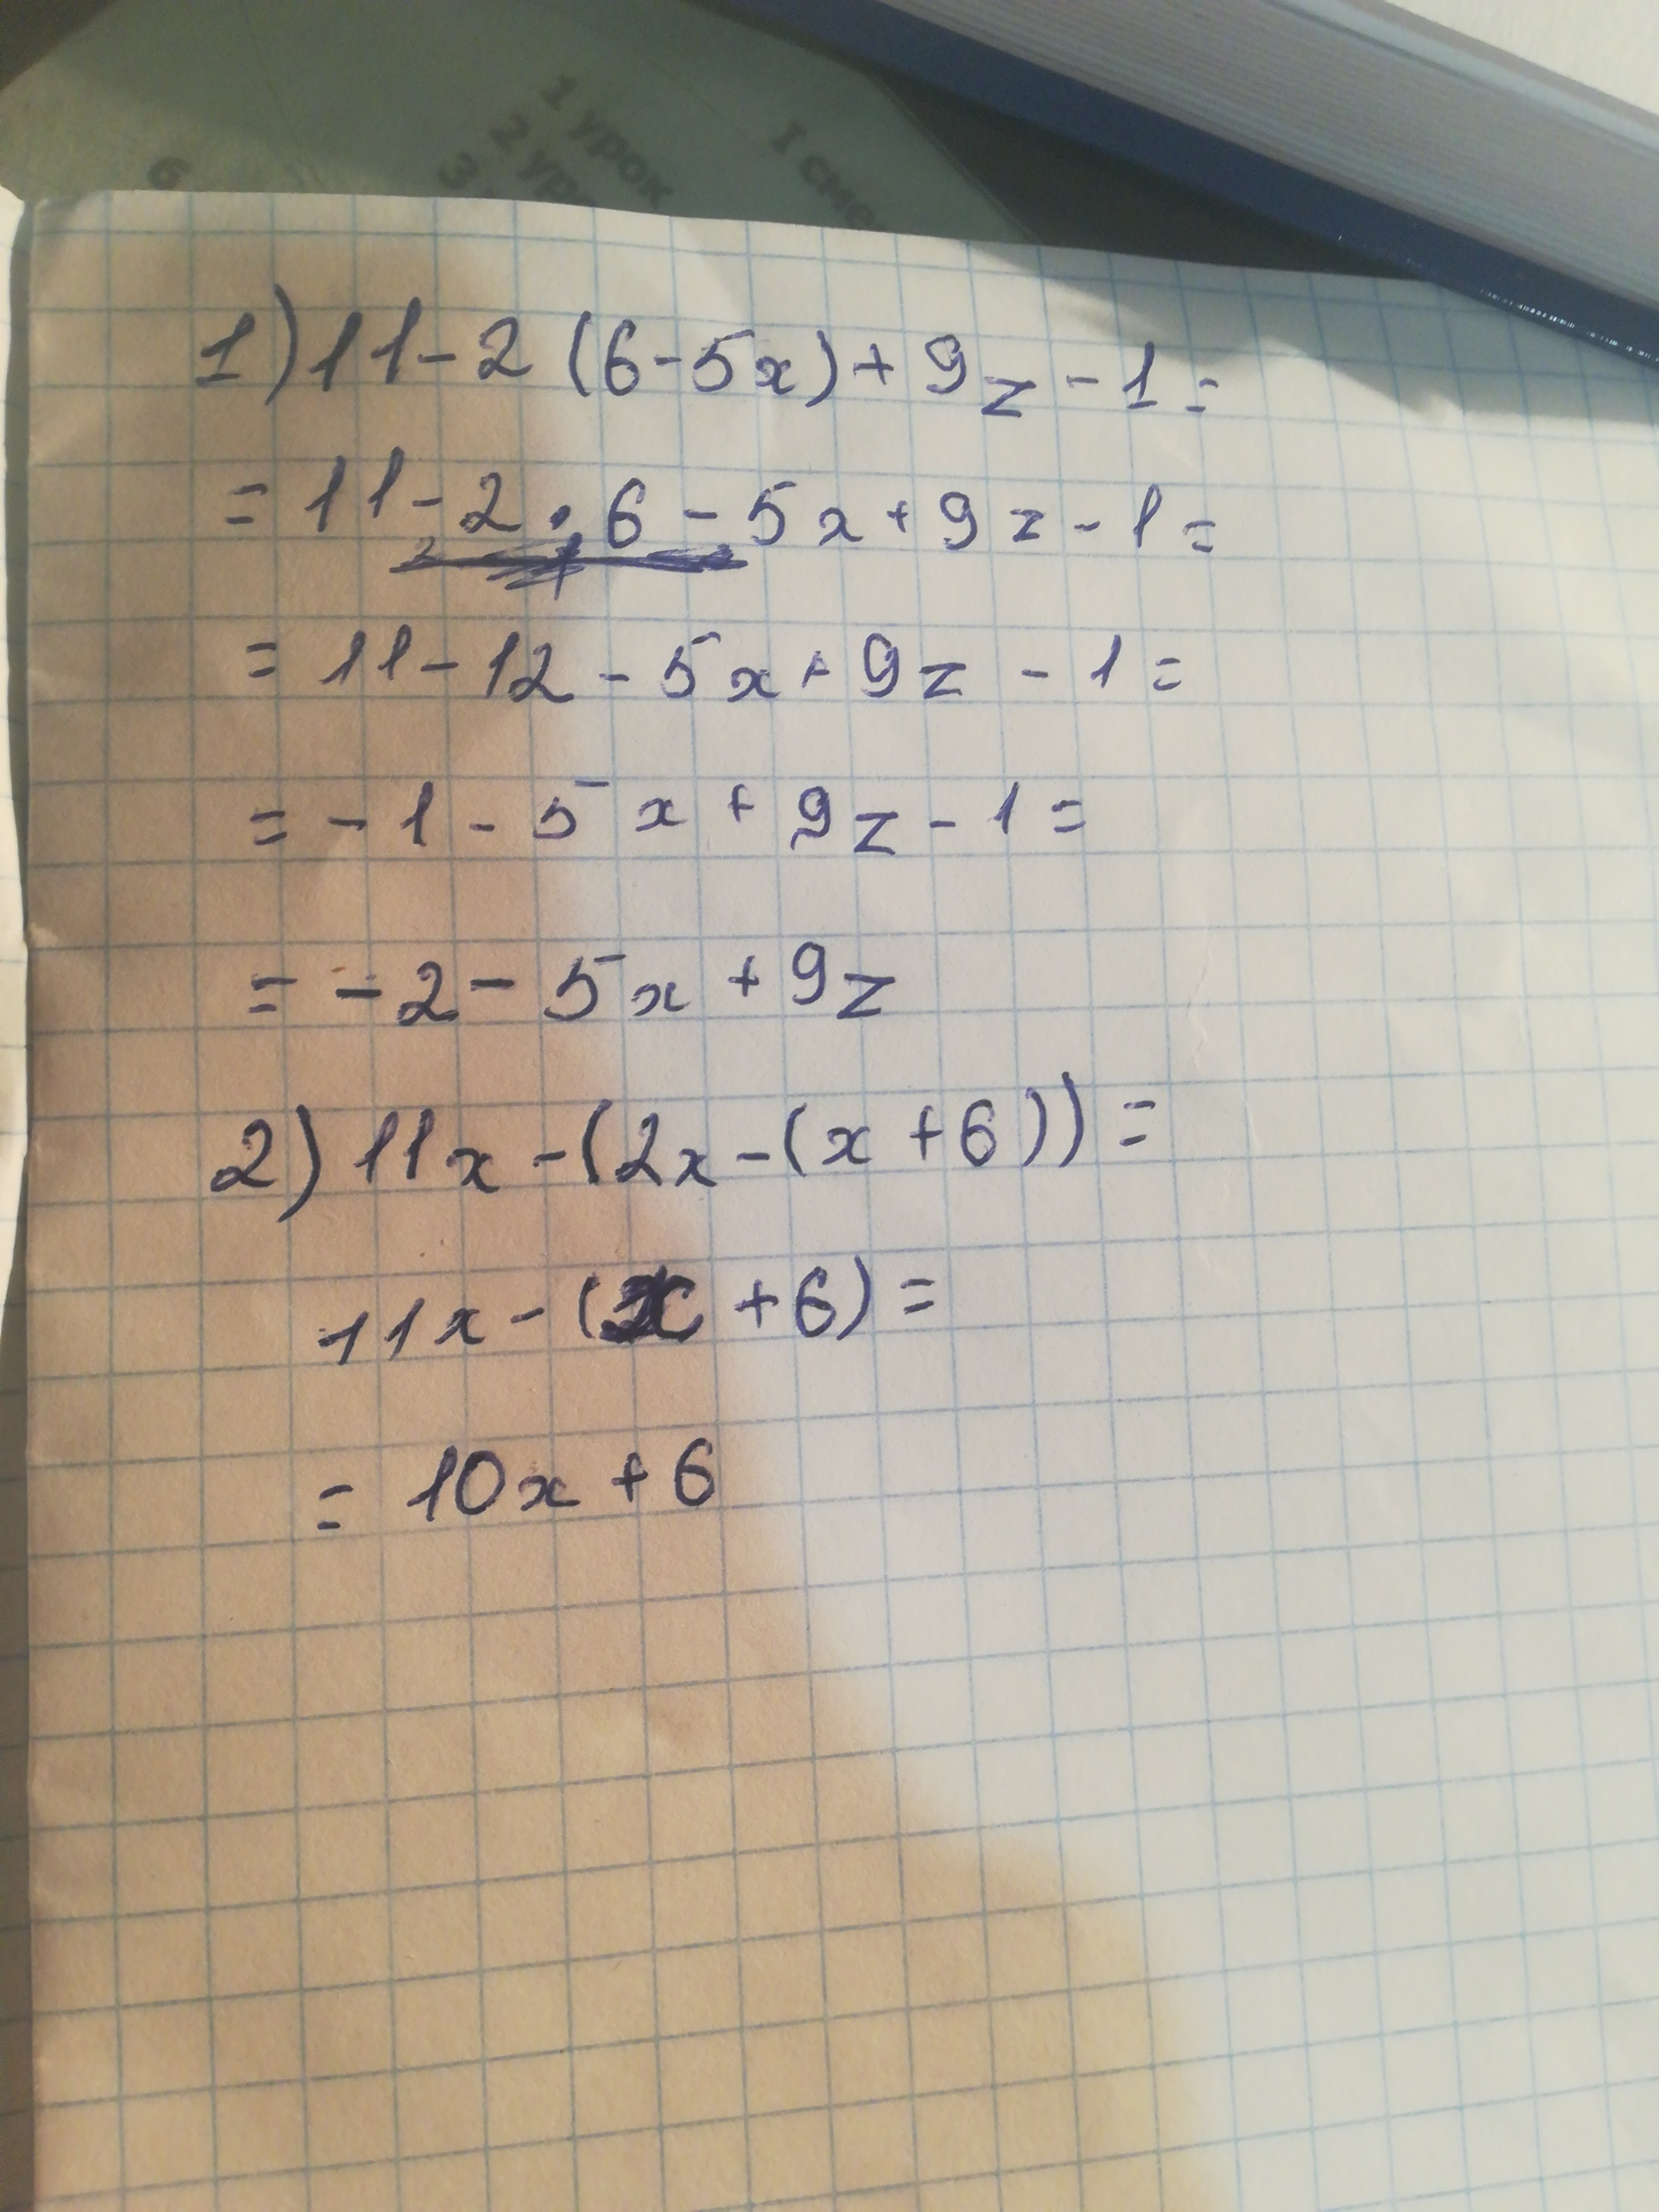 1 урок
2 уро
3
I сме
6
1) 11 - 2 (6 - 5x) + 9z - 1 =
= 11 - 2 · 6 - 5x + 9z - 1 =
= 11 - 12 - 5x + 9z - 1 =
= - 1 - 5x + 9z - 1 =
= - 2 - 5x + 9z
2) 11x - (2x - (x + 6)) =
11x - (x + 6) =
= 10x + 6